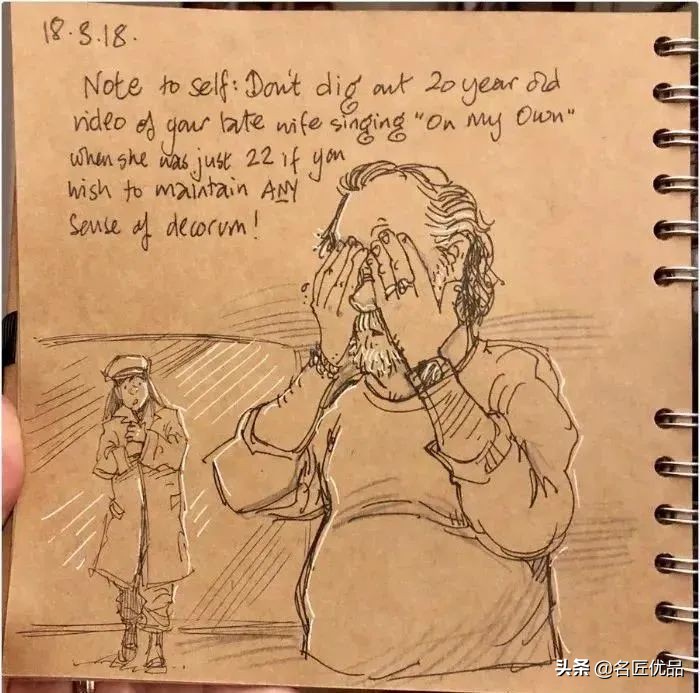 18.3.18.
Note to self: Don't dig out 20 year old
video of your late wife singing "On My Own"
when she was just 22 if you
wish to maintain ANY
sense of decorum!
头条 @名匠优品